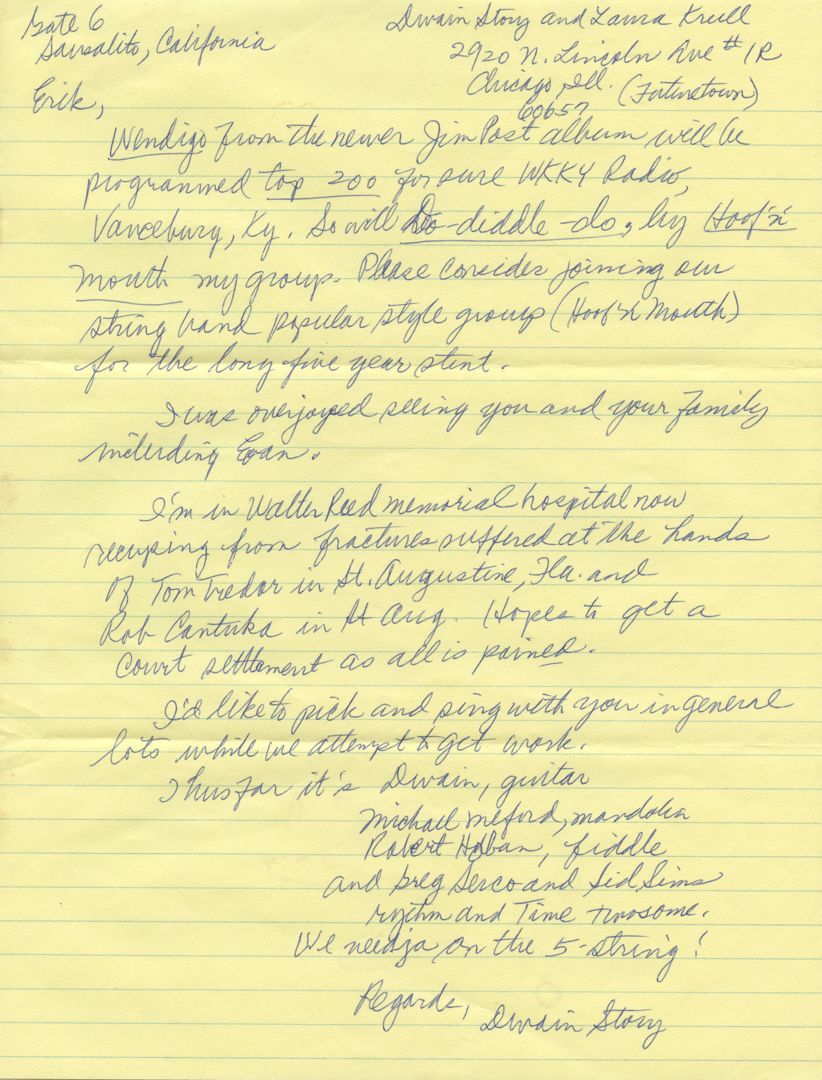 Gate 6
Sausalito, California
Dwain Story and Laura Krull
2920 N. Lincoln Ave #1R
Chicago, Ill. (Futuretown)
60657
Erik,
Wendigo from the newer Jim Post album will be
programmed top 200 for sure WKKY Radio,
Vanceburg, Ky. So will Do-diddle-do, by Hoof'n'
Mouth my group. Please consider joining our
string band popular style group (Hoof'n Mouth)
for the long five year stint.
I was overjoyed seeing you and your family
including Evan.
I'm in Walter Reed memorial hospital now
recuping from fractures suffered at the hands
of Tom Tredor in St. Augustine, Fla. and
Rob Cantuka in St Aug. Hopes to get a
Court settlement as all is pained.
I'd like to pick and sing with you in general
lots while we attempt to get work.
Thus far it's Dwain, guitar
Michael Meford, mandolin
Robert Hoban, fiddle
and Greg Serco and Sid Sims
rythm and Time twosome.
We needja on the 5-string!
Regards,
Dwain Story